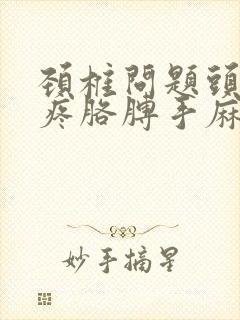 頚椎問題頭
疼胳膊手麻
妙手摘星